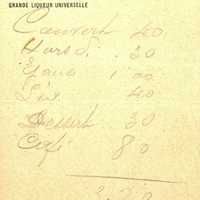 GRANDE LIQUEUR UNIVERSELLE
Couvert 40
Hors d. 30
1 00
40
Dessert 30
Café 80
3.20